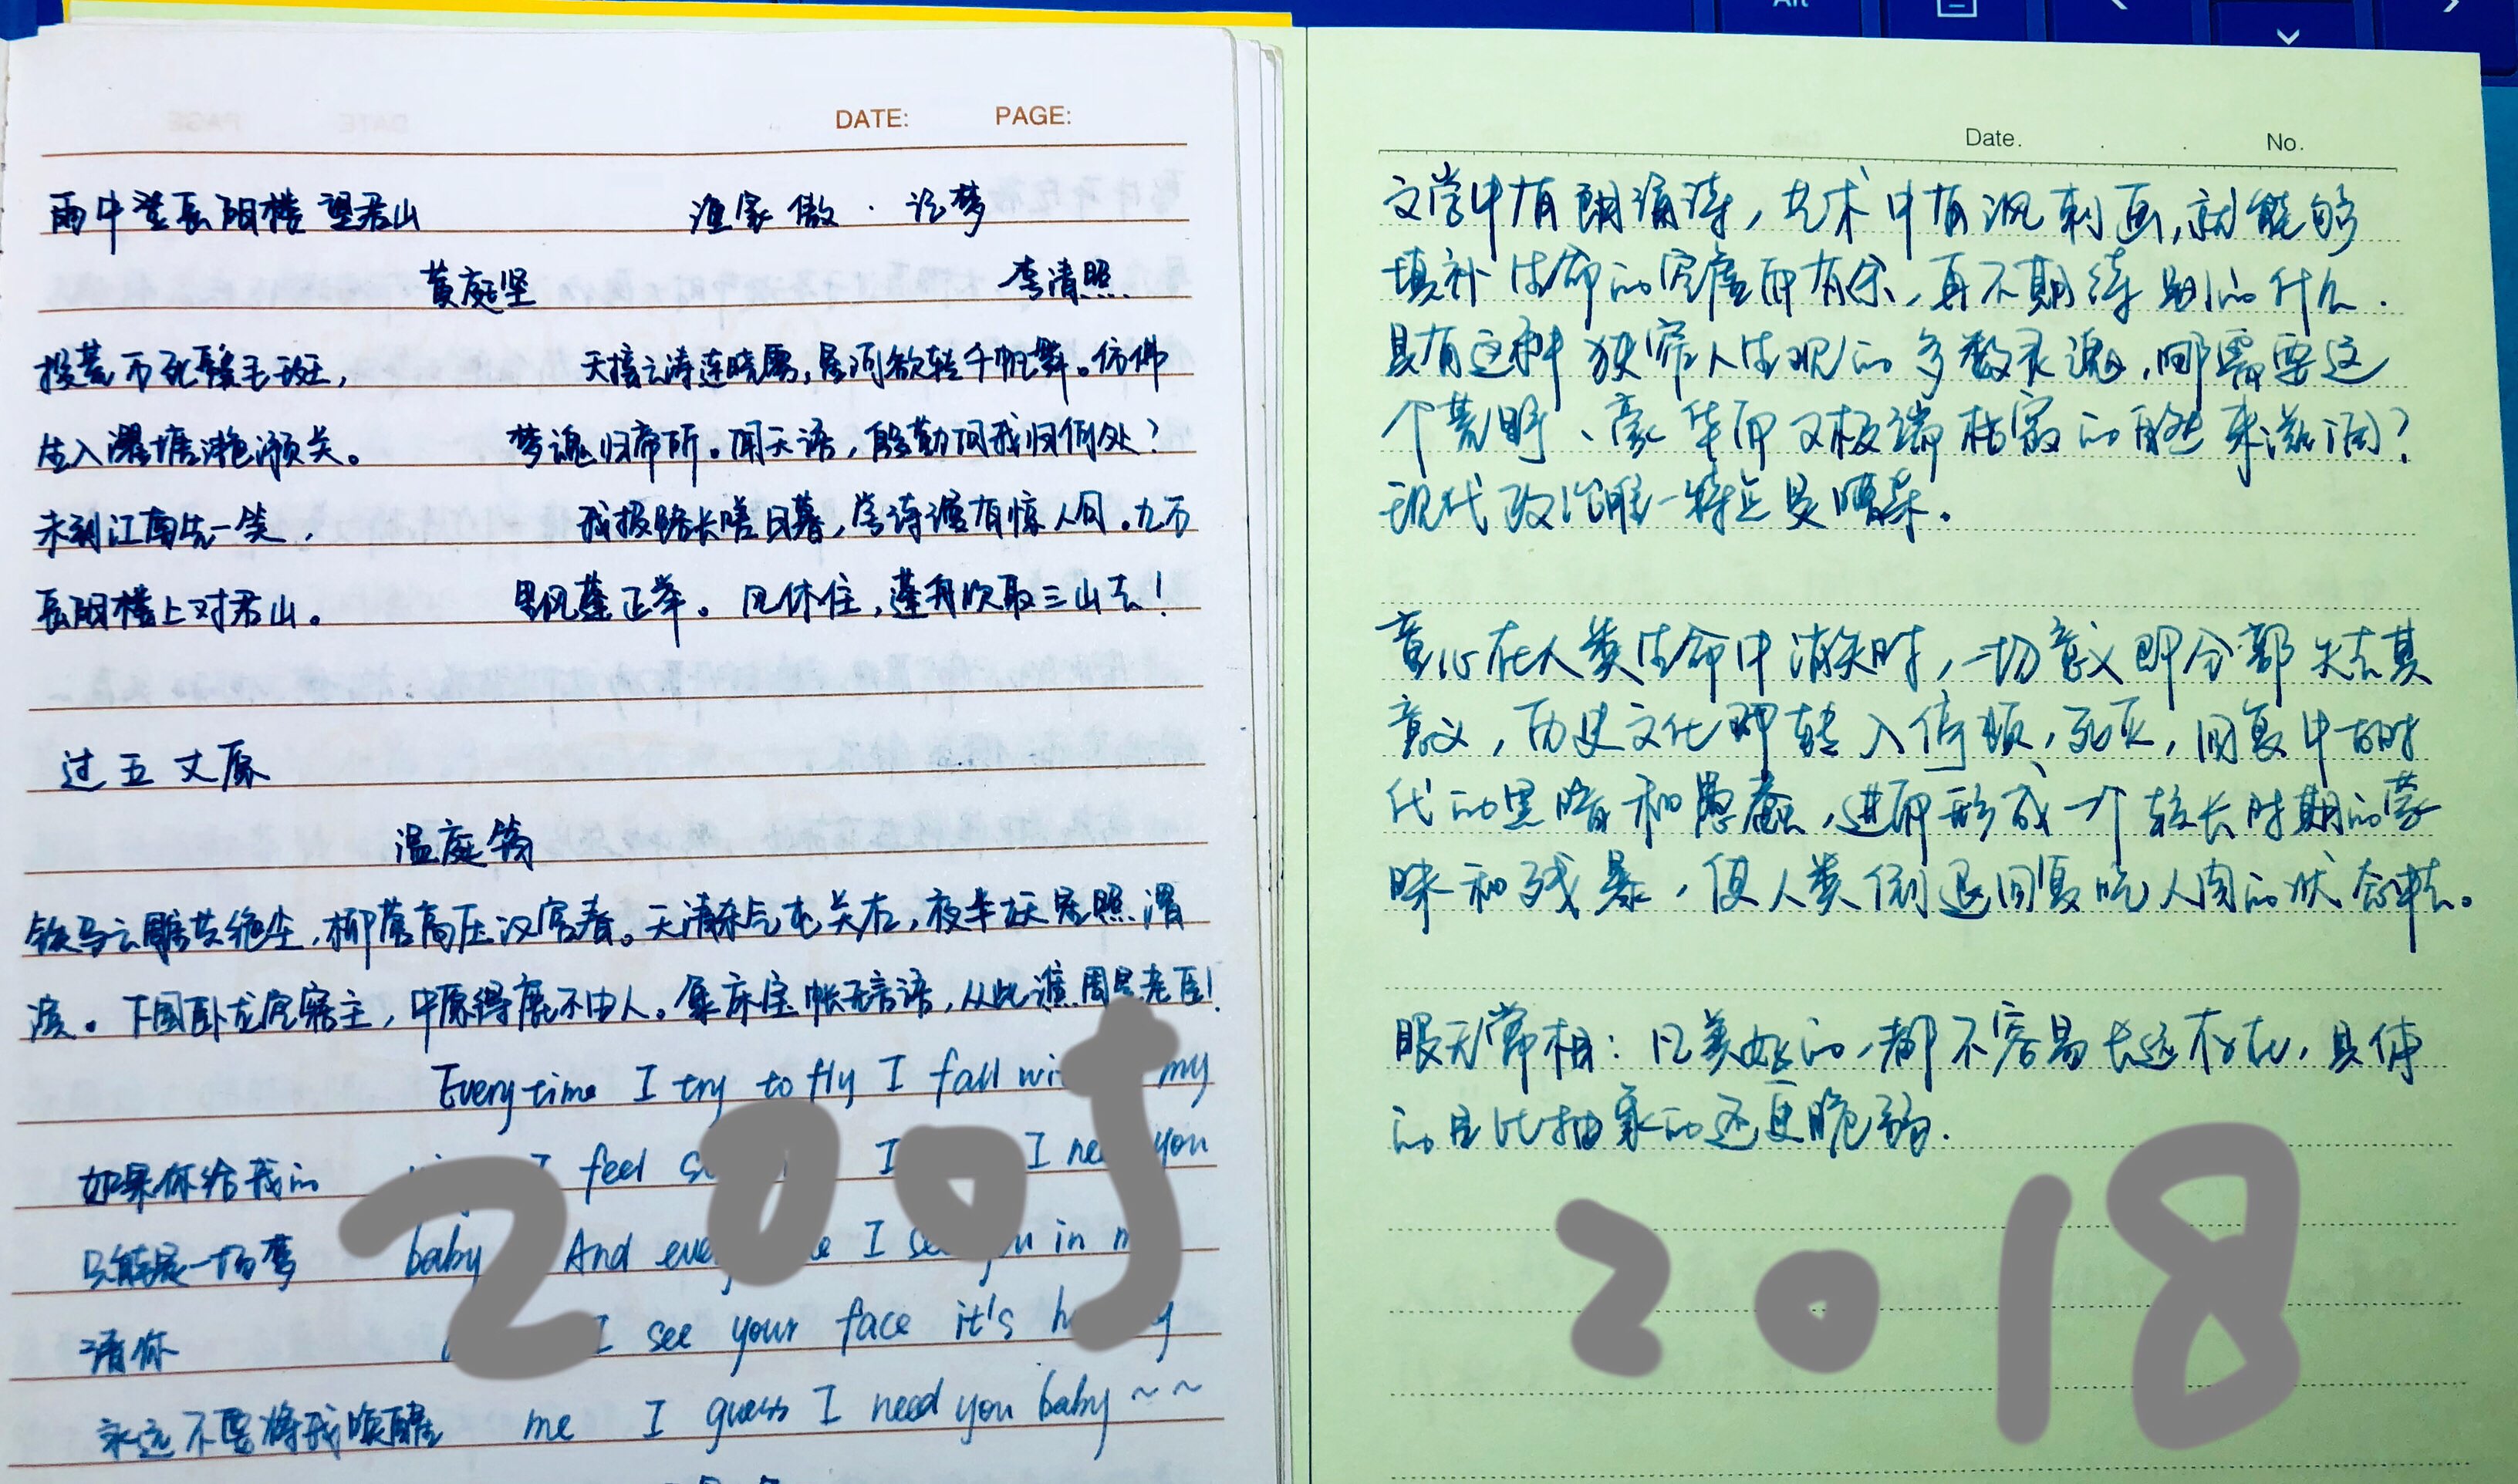 Alt
DATE: PAGE:
雨中登岳阳楼望君山
黄庭坚
投荒万死鬓毛斑，
生入瞿塘滟滪关。
未到江南先一笑，
岳阳楼上对君山。
渔家傲·记梦
李清照
天接云涛连晓雾，星河欲转千帆舞。仿佛
梦魂归帝所。闻天语，殷勤问我归何处？
我报路长嗟日暮，学诗谩有惊人句。九万
里风蓬正举。风休住，蓬舟吹取三山去！
过五丈原
温庭筠
铁马云雕共绝尘，柳营高压汉宫春。天清杀气屯关右，夜半妖星照渭
滨。下国卧龙空寤主，中原得鹿不由人。象床宝帐无言语，从此谯周是老臣！
如果你给我的
只能是一场梦
请你
永远不要将我唤醒
Every time I try to fly I fall my
I feel I I need you
baby And I see in
I see your face it's
me I guess I need you baby ~~
2005
Date. No.
文学中有朗诵诗，艺术中有讽刺画，就能够
填补生命的空虚而有余，再不期待别的什么.
具有这种狭窄人生观的多数灵魂，哪需要这
个荒野、豪华而又极端枯寂的自然来滋润？
现代政治唯一特点是嘈杂.
童心在人类生命中消失时，一切意义即全部失去其
意义，历史文化即转入停顿，死灭，回复中古时
代的黑暗和愚蠢，进而形成一个较长时期的蒙
昧和残暴，使人类倒退回复吃人肉的状态中去。
眼无常相：凡美好的，都不容易长远存在，具体
的且比抽象的还更脆弱.
2018